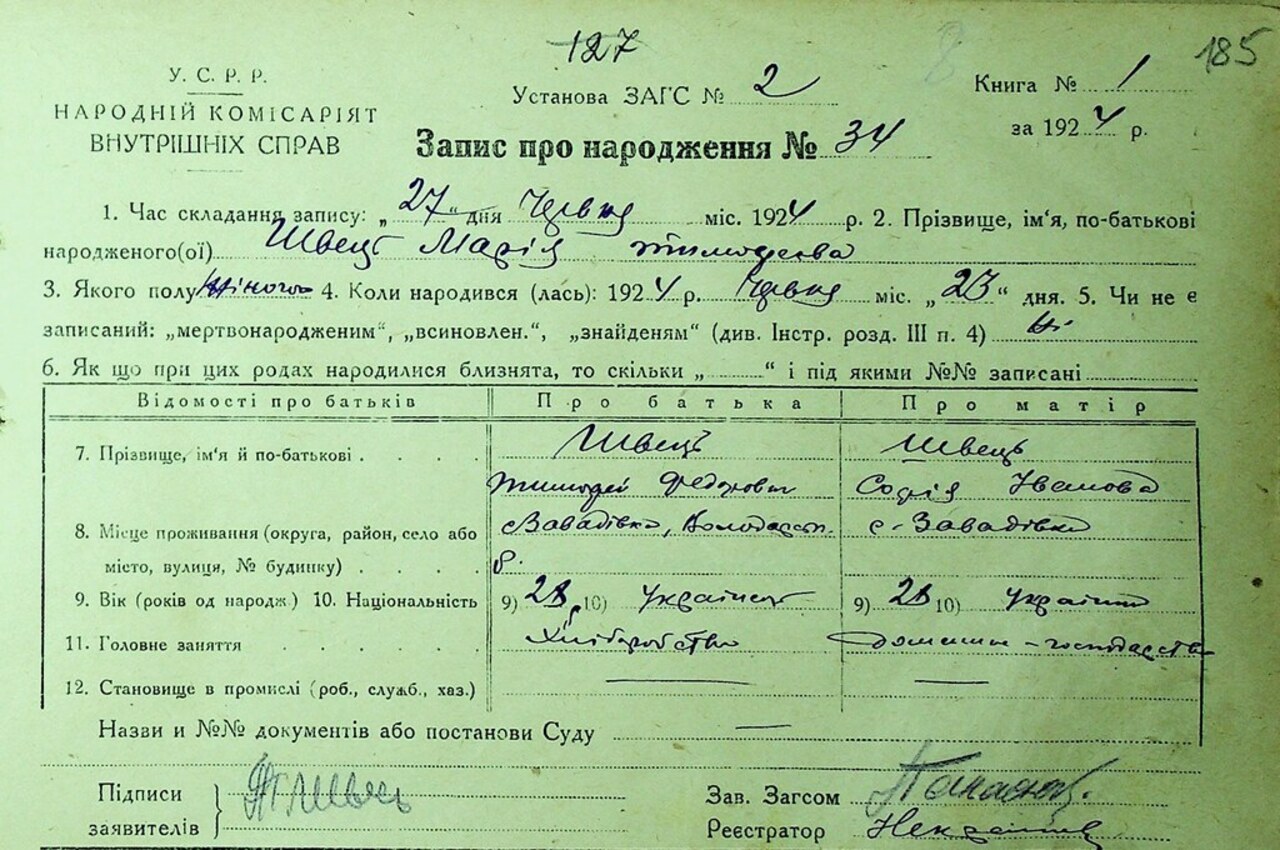 127
185
У. С. Р. Р.
НАРОДНІЙ КОМІСАРІЯТ
ВНУТРІШНІХ СПРАВ
Установа ЗАГС № 2
Книга № 1
за 1924 р.
Запис про народження № 34
1. Час складання запису: „27“ дня Червня міс. 1924 р. 2. Прізвище, ім‘я, по-батькові
народженого(ої) Швець Марія Тимофієва
3. Якого полу жіного 4. Коли народився (лась): 1924 р. Червня міс. „23“ дня. 5. Чи не є
записаний: „мертвонародженим“, „всиновлен.“, „знайденям“ (див. Інстр. розд. III п. 4) Ні
6. Як що при цих родах народилися близнята, то скільки „ “ і під якими №№ записані
Відомості про батьків Про батька Про матір
7. Прізвище, ім‘я й по-батькові . . . Швець Швець
Тимофей Федорович Софія Іванова
8. Місце проживання (округа, район, село або Завадівка, с. Завадівка
місто, вулиця, № будинку) . . . р.
9. Вік (років од народж.) 10. Національність 9) 28 10) 9) 28 10)
11. Головне заняття . . . . . . Хліборобство домашнє-господарство
12. Становище в промислі (роб., служб., хаз.) — —
Назви и №№ документів або постанови Суду —
Підписи
заявителів
Швець
Зав. Загсом
Реєстратор